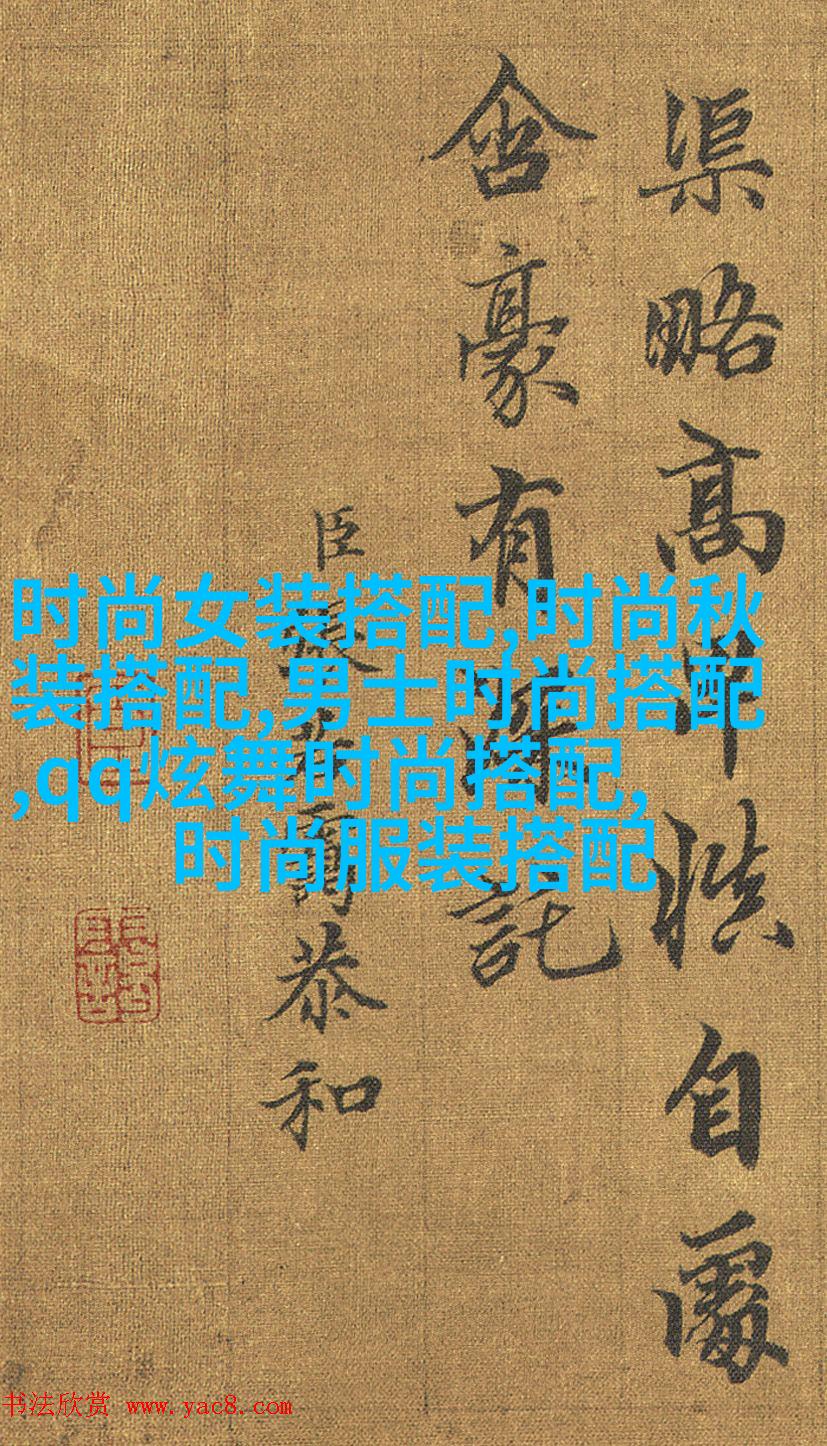 渠略高慎自處
含豪有託
臣恭和
时尚女装搭配,时尚秋
装搭配,男士时尚搭配
,qq炫舞时尚搭配,
时尚服装搭配
书法欣赏 www.yac8.com